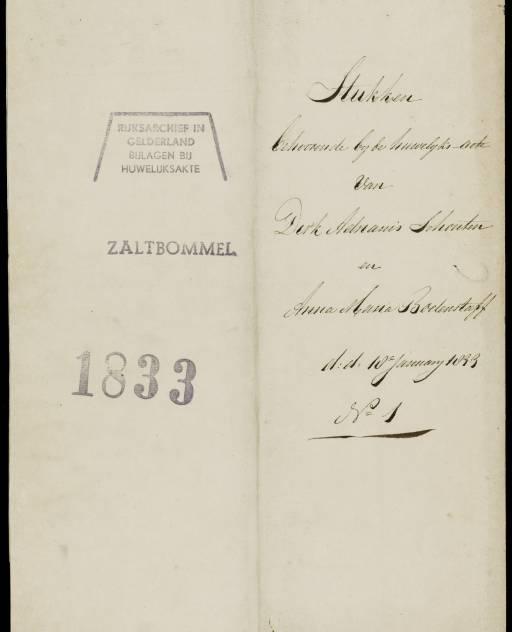 RIJKSARCHIEF IN
GELDERLAND
BIJLAGEN BIJ
HUWELIJKSAKTE
ZALTBOMMEL
1833
Stukken
behoorende bij de huwelijks-acte
van
Dirk Adrianis Schouten
en
Anna Maria Bodenstaff
d: d: 10e January 1833
No 1